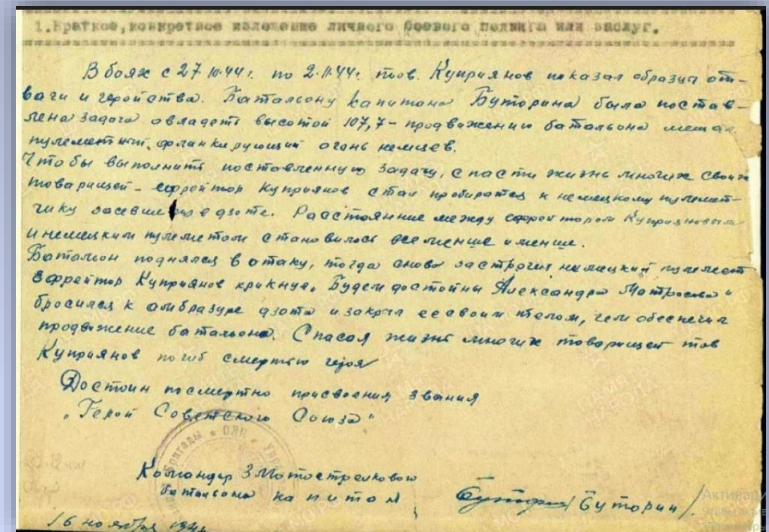 1. Краткое, конкретное изложение личного боевого подвига или заслуг.
В боях с 27.10.44г. по 2.11.44г. тов. Куприянов показал образцы от-
ваги и геройства. Батальону капитана Буторина была постав-
лена задача овладеть высотой 107,7 - продвижению батальона мешал
пулеметный, фланкирующий огонь немцев.
Чтобы выполнить поставленную задачу, спасти жизнь многих своих
товарищей - ефрейтор Куприянов стал пробираться к немецкому пулемет-
чику засевшему в дзоте. Расстояние между ефрейтором Куприяновым
и немецким пулеметом становилось все меньше и меньше.
Батальон поднялся в атаку, тогда снова застрочил немецкий пулемет
Ефрейтор Куприянов крикнув „Будем достойны Александра Матросова"
бросился к амбразуре дзота и закрыл ее своим телом, чем обеспечил
продвижение батальона. Спасая жизнь многих товарищей тов
Куприянов погиб смертью героя
Достоин посмертно присвоения звания
„Герой Советского Союза"
Командир 3 Мотострелкового
батальона капитан Буторин /Буторин/.
16 ноября